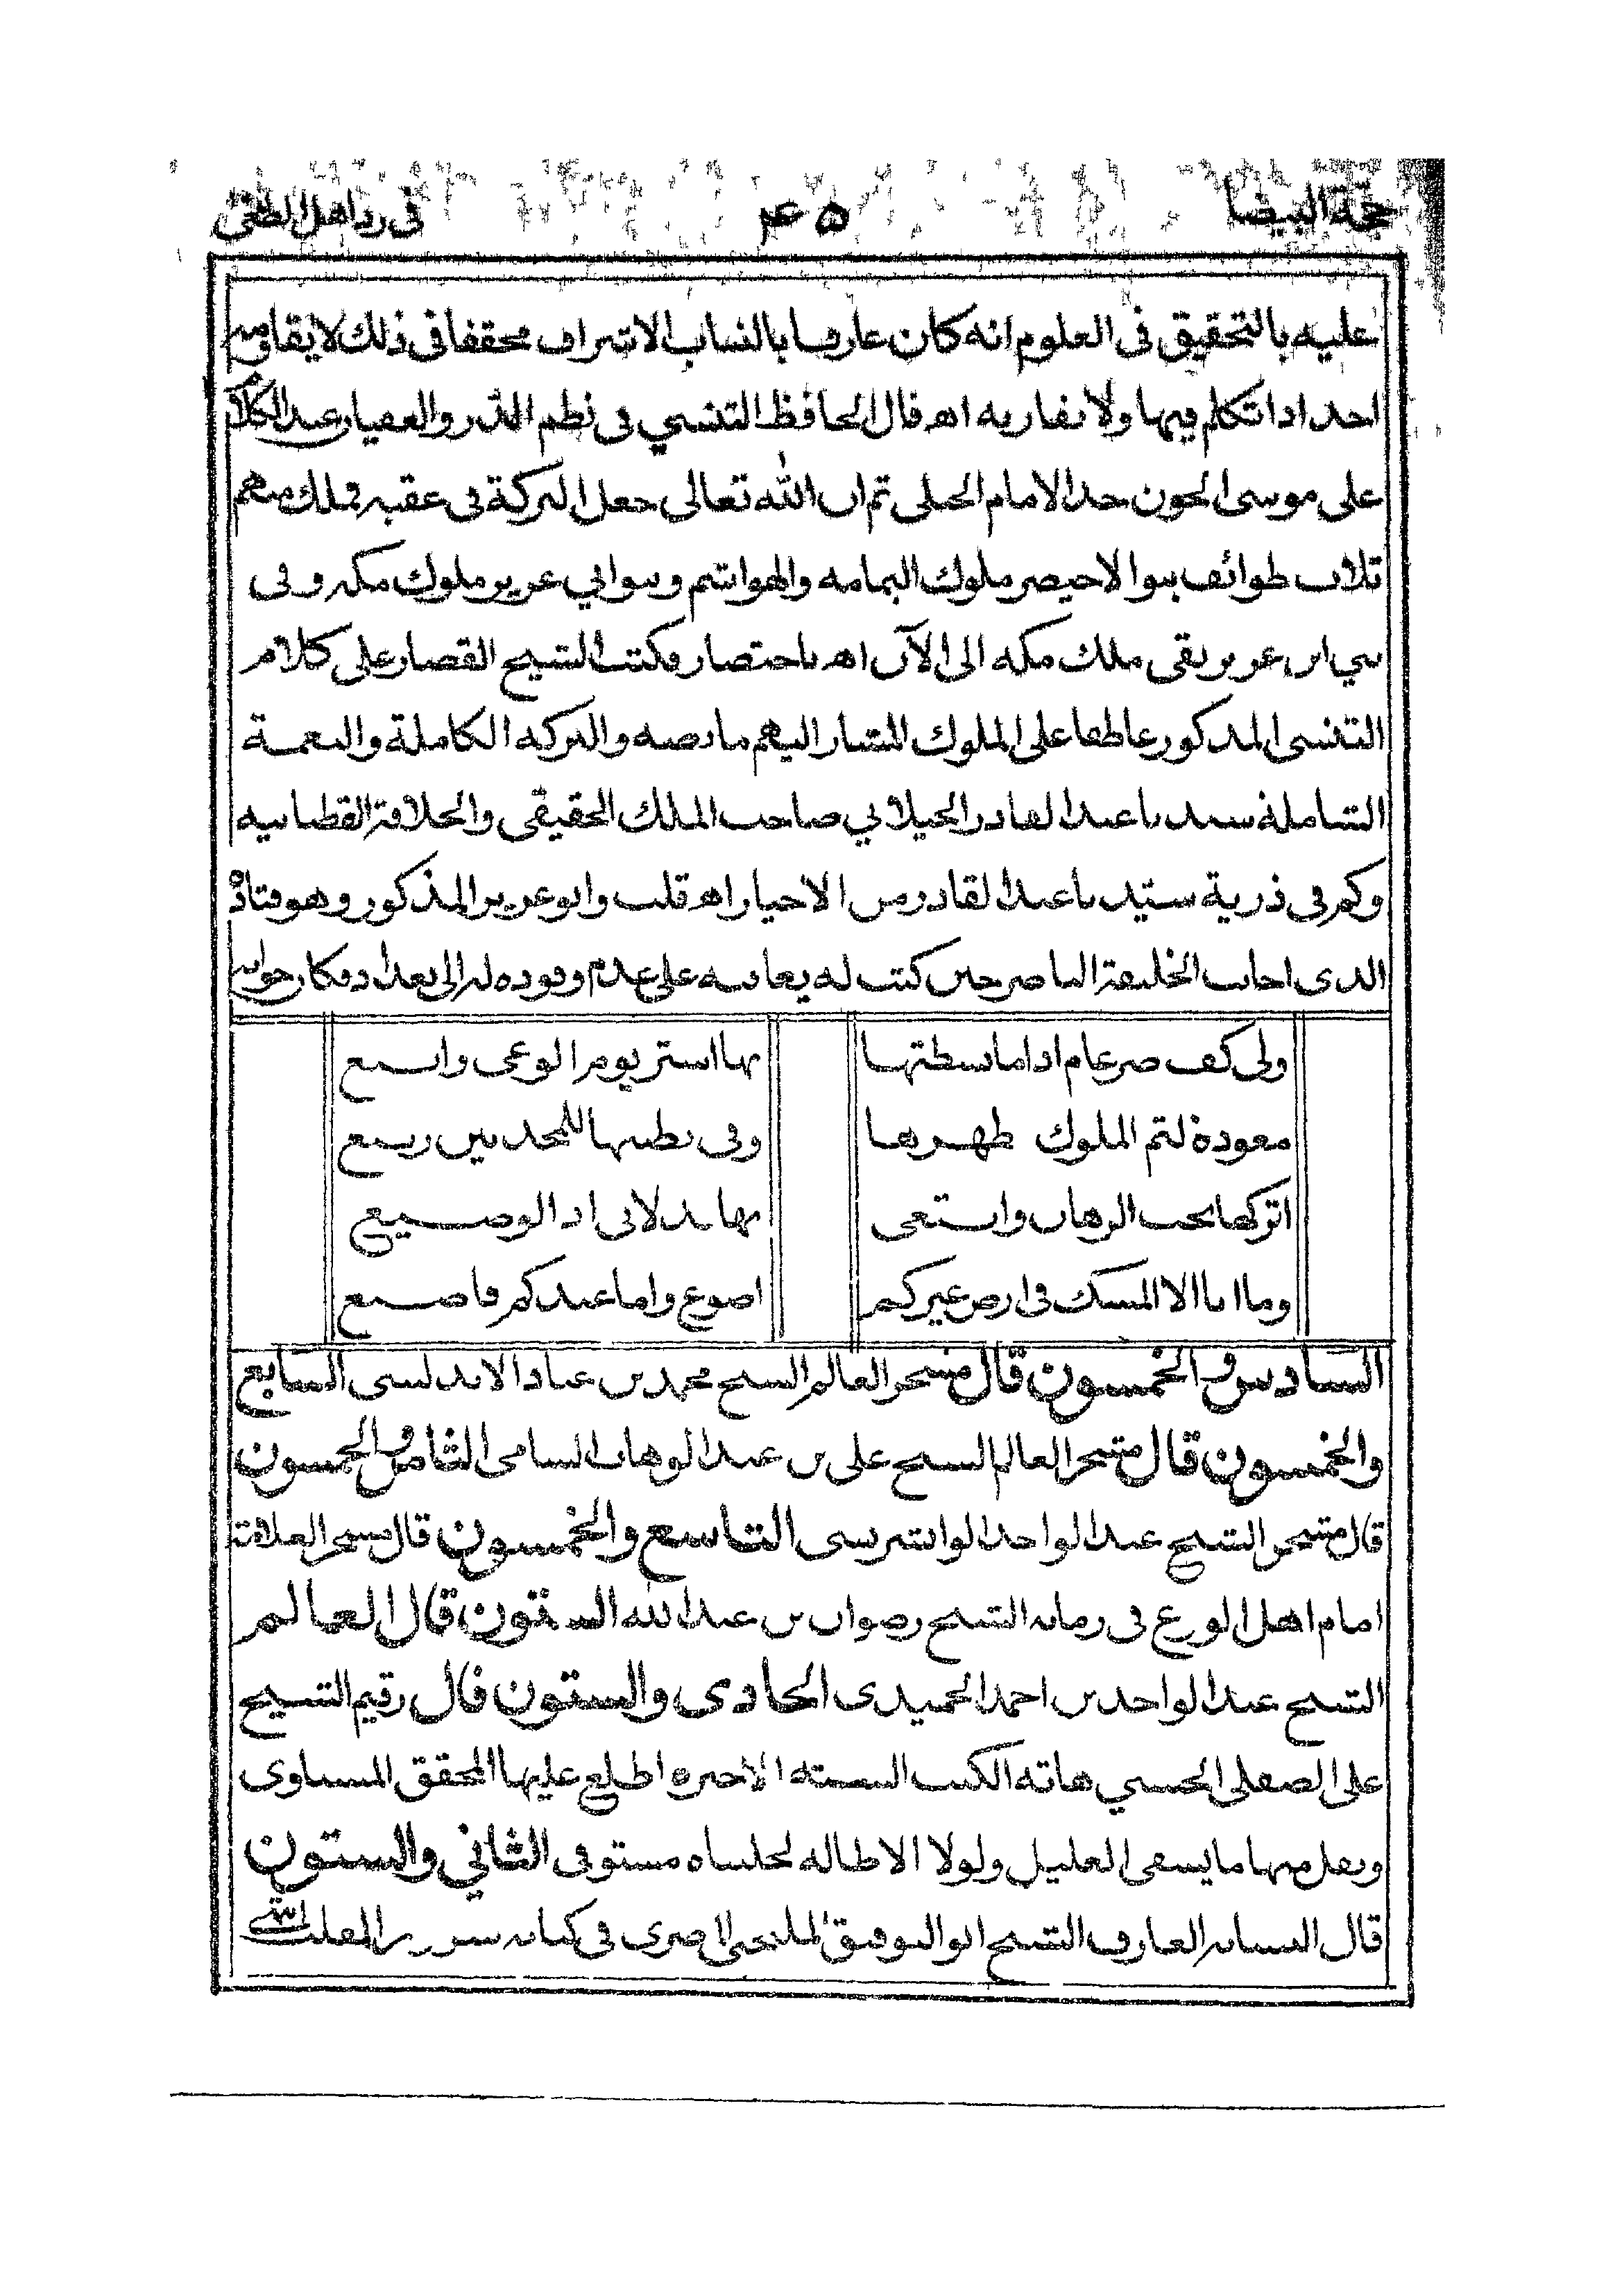 حجة البيضا ۴۵ في رد اهل الطغى
عليه بالتحقيق في العلوم انه كان عارفا بالنساب الاشراف محققا في ذلك لا يقاومه
احد اذا تكلم فيها ولا يقاربه اھ قال الحافظ التنسي في نظم الدر والعقيان عند الكلام
على موسى الجون جد الامام الجيلي ثم ان الله تعالى جعل البركة في عقبه فملك منهم
ثلاث طوائف بنوا الاخيضر ملوك اليمامه والهواشم وبنوا ابي عزيز ملوك مكه وفى
بني ابي عزيز بقى ملك مكه الى الآن اھ باختصار وكتب الشيخ القصار على كلام
التنسى المذكور عاطفا على الملوك المشار اليهم ما نصه والبركه الكاملة والنعمة
الشاملة سيدنا عبد القادر الجيلاني صاحب الملك الحقيقى والخلافة القطبانيه
وكم في ذرية سيدنا عبد القادر من الاخيار اھ قلت وابو عزيز المذكور وهو قتادة
الذى اجاب الخليفة الناصر حين كتب له يعاتبه على عدم وفوده له الى بغداد فكان جوابه
ولي كف ضرغام اذا ما بسطتها بها اشتر يوم الوغى وابيع
معودة لثم الملوك ظهرها وفى بطنها للمجدبين ربيع
اتركها تحت الرهان وابتغى بها بدلا انى اذا لوضيع
وما انا الا المسك في ارض غيركم اضوع واما عندكم فاضيع
السادس والخمسون قال متبحر العالم الشيخ محمد بن عباد الاندلسى السابع
والخمسون قال متبحر العالم الشيخ على بن عبد الوهاب السامى الثامن والخمسون
قال متبحر الشيخ عبد الواحد الوانشريسى التاسع والخمسون قال متبحر العلامة
امام اهل الورع في زمانه الشيخ رضوان بن عبد الله الستون قال العالم
الشيخ عبد الواحد بن احمد الحميدى الحادى والستون قال رقيم الشيخ
على الصقلى الحسني هاته الكتب الستة الاخيره اطلع عليها المحقق المسناوى
ونقل منها ما يشفى العليل ولولا الاطالة لجلبناه مستوفى الثاني والستون
قال النسابه العارف الشيخ ابو التوفيق في كتابه